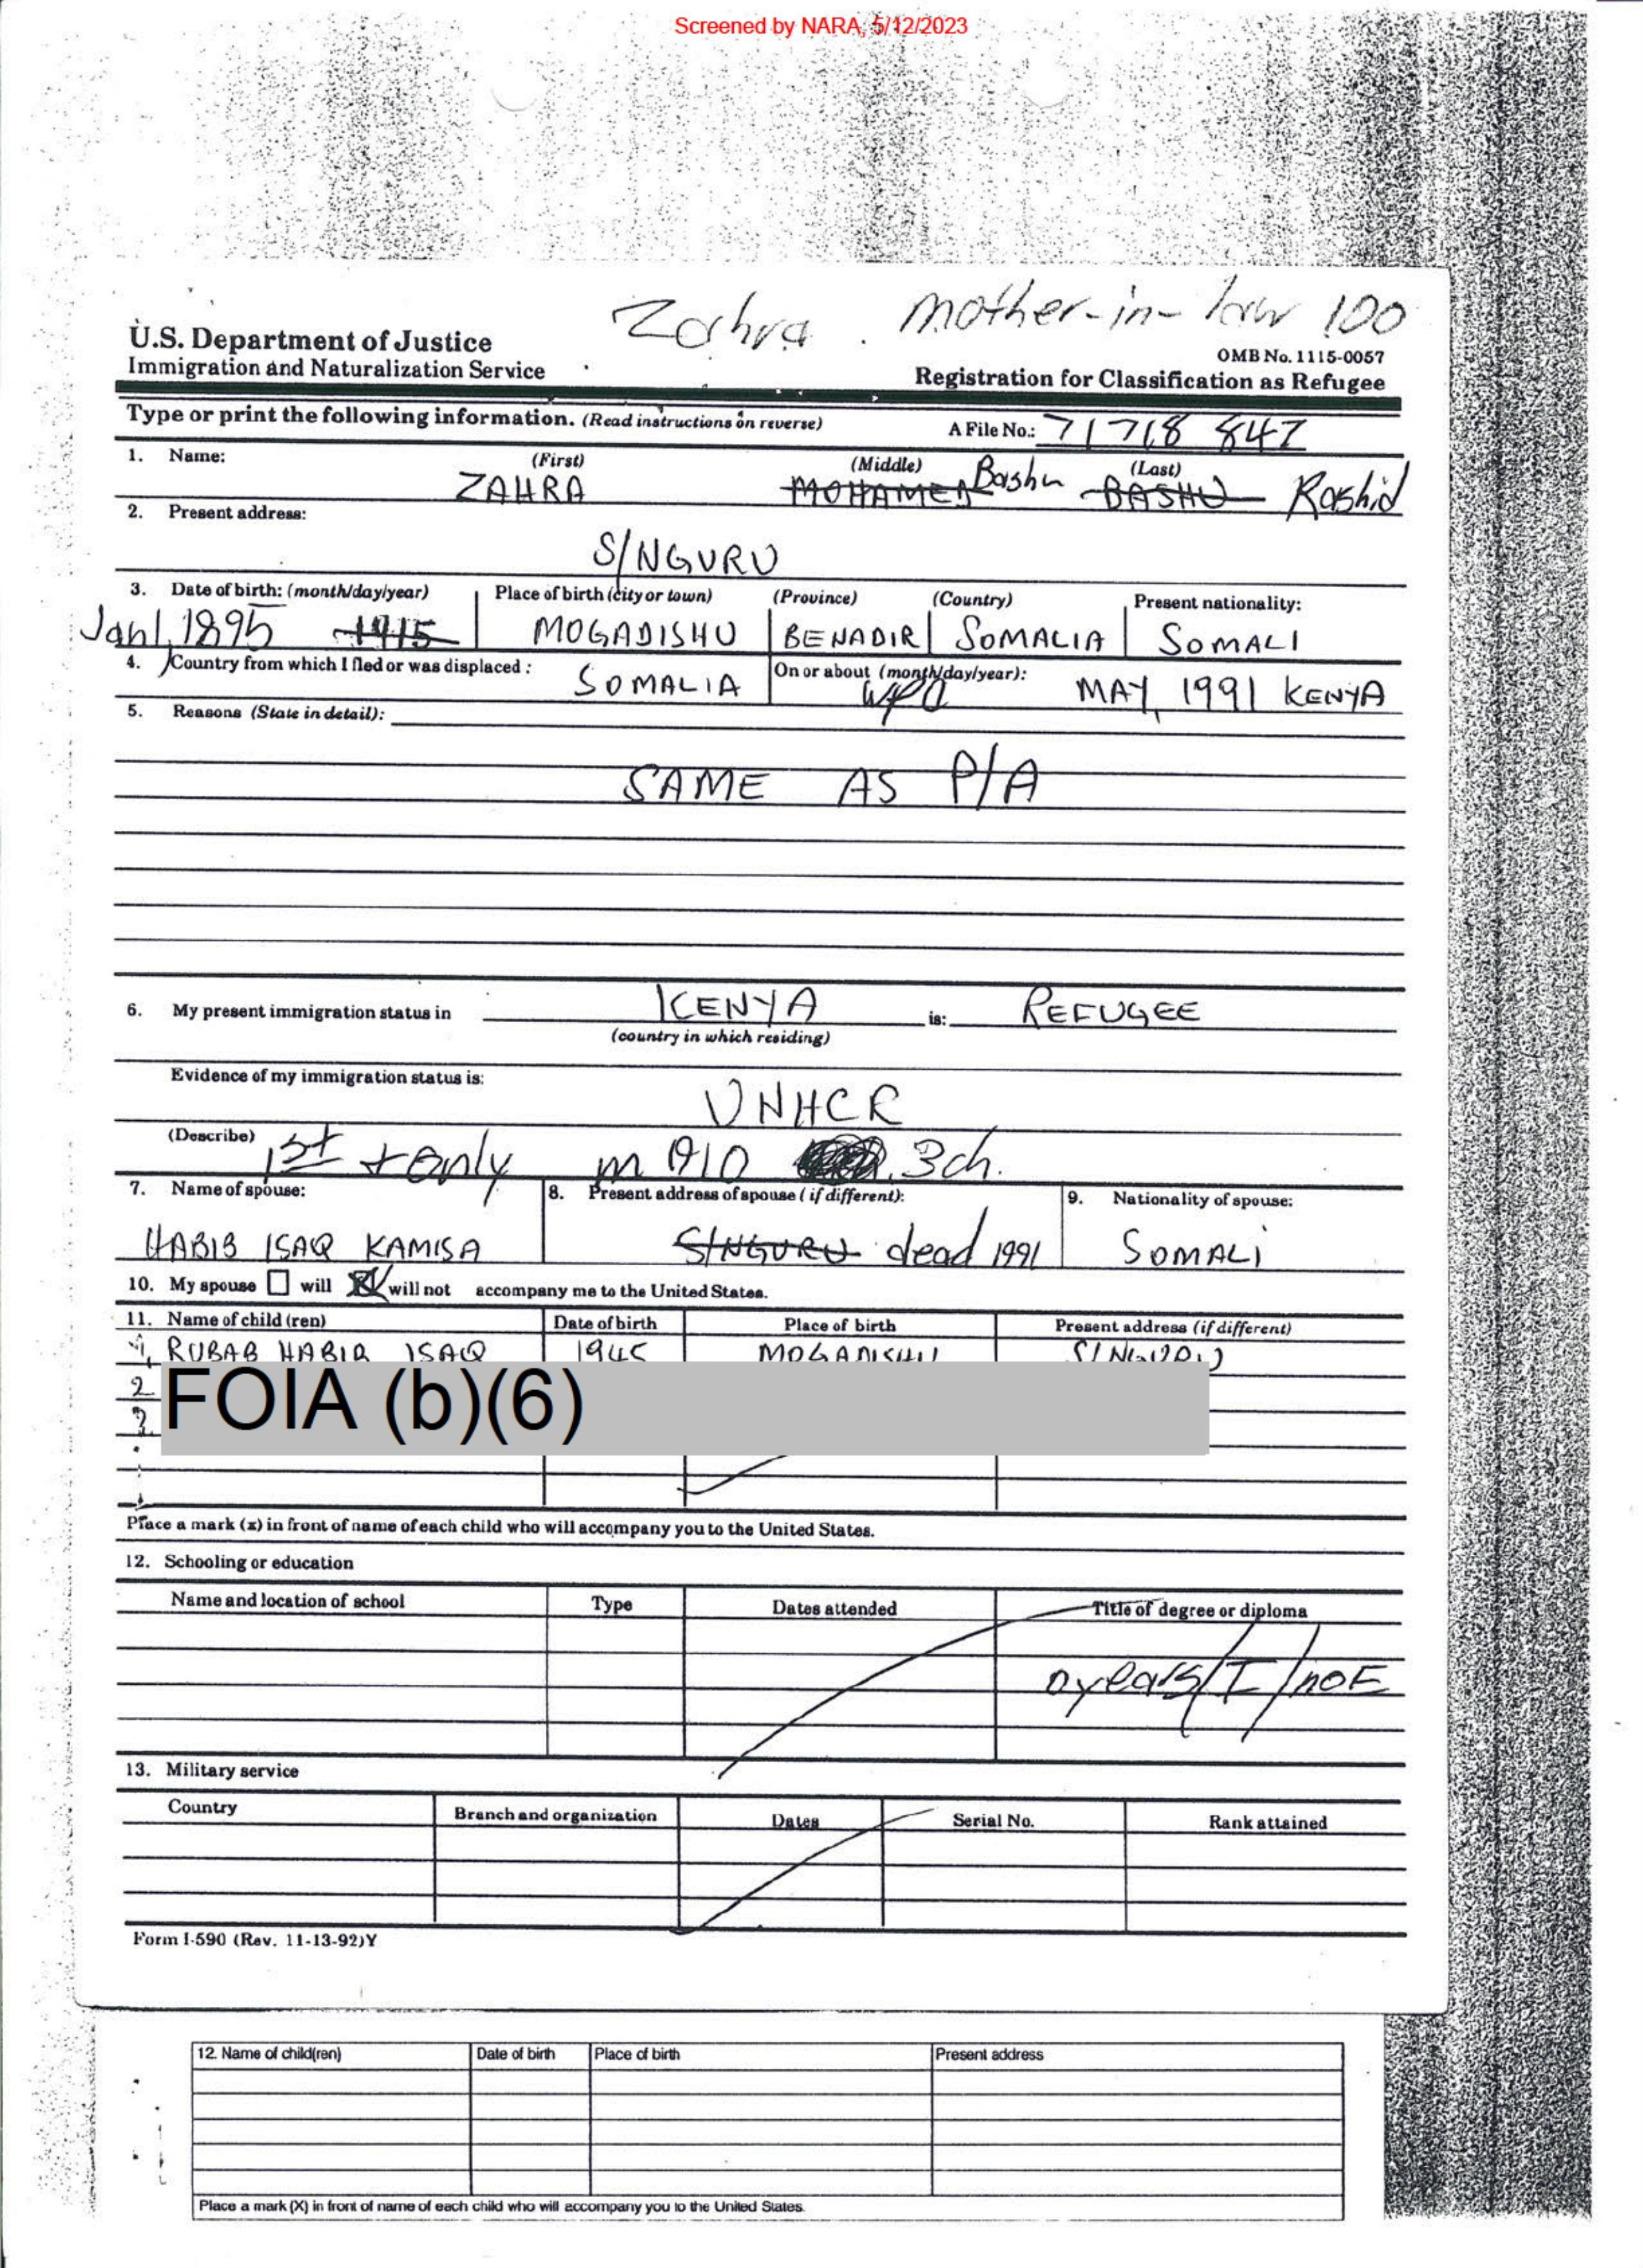 Screened by NARA, 5/12/2023
Zahra . mother-in-law 100
U.S. Department of Justice
Immigration and Naturalization Service
OMB No. 1115-0057
Registration for Classification as Refugee
Type or print the following information. (Read instructions on reverse)
A File No.: 71 718 847
1. Name: (First) (Middle) (Last)
ZAHRA MOHAMED Bashu BASHU Rashid
2. Present address:
S/NGURU
3. Date of birth: (month/day/year) Place of birth (city or town) (Province) (Country) Present nationality:
Jan 1, 1895 1915 MOGADISHU BENADIR SOMALIA SOMALI
4. Country from which I fled or was displaced : SOMALIA On or about (month/day/year): MAY, 1991 KENYA
5. Reasons (State in detail):
SAME AS P/A
6. My present immigration status in KENYA is: REFUGEE
(country in which residing)
Evidence of my immigration status is:
UNHCR
(Describe) 1st + only m 1910 3ch.
7. Name of spouse: 8. Present address of spouse (if different): 9. Nationality of spouse:
HABIB ISAQ KAMISA S/NGURU dead 1991 SOMALI
10. My spouse will will not accompany me to the United States.
11. Name of child (ren) Date of birth Place of birth Present address (if different)
1, RUBAB HABIB ISAQ 1945 MOGADISHU S/NGURU
2
3.
FOIA (b)(6)
Place a mark (x) in front of name of each child who will accompany you to the United States.
12. Schooling or education
Name and location of school Type Dates attended Title of degree or diploma
0 years/I/no E
13. Military service
Country Branch and organization Dates Serial No. Rank attained
Form I-590 (Rev. 11-13-92)Y
12. Name of child(ren) Date of birth Place of birth Present address
Place a mark (X) in front of name of each child who will accompany you to the United States.